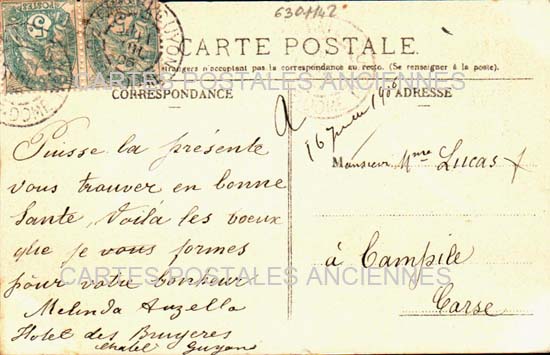 6301142
CARTE POSTALE.
étrangers n'acceptent pas la correspondance au recto. (Se renseigner à la poste).
CARTES POSTALES ANCIENNES
CORRESPONDANCE
ADRESSE
Puisse la présente
vous trouver en bonne
Santé, Voilà les voeux
que je vous formes
pour votre bonheur
Melinda Auzella
Hotel des Bruyeres
Chatel Guyon
Monsieur Mme Lucas
à Campile
Corse
CARTES POSTALES ANCIENNES